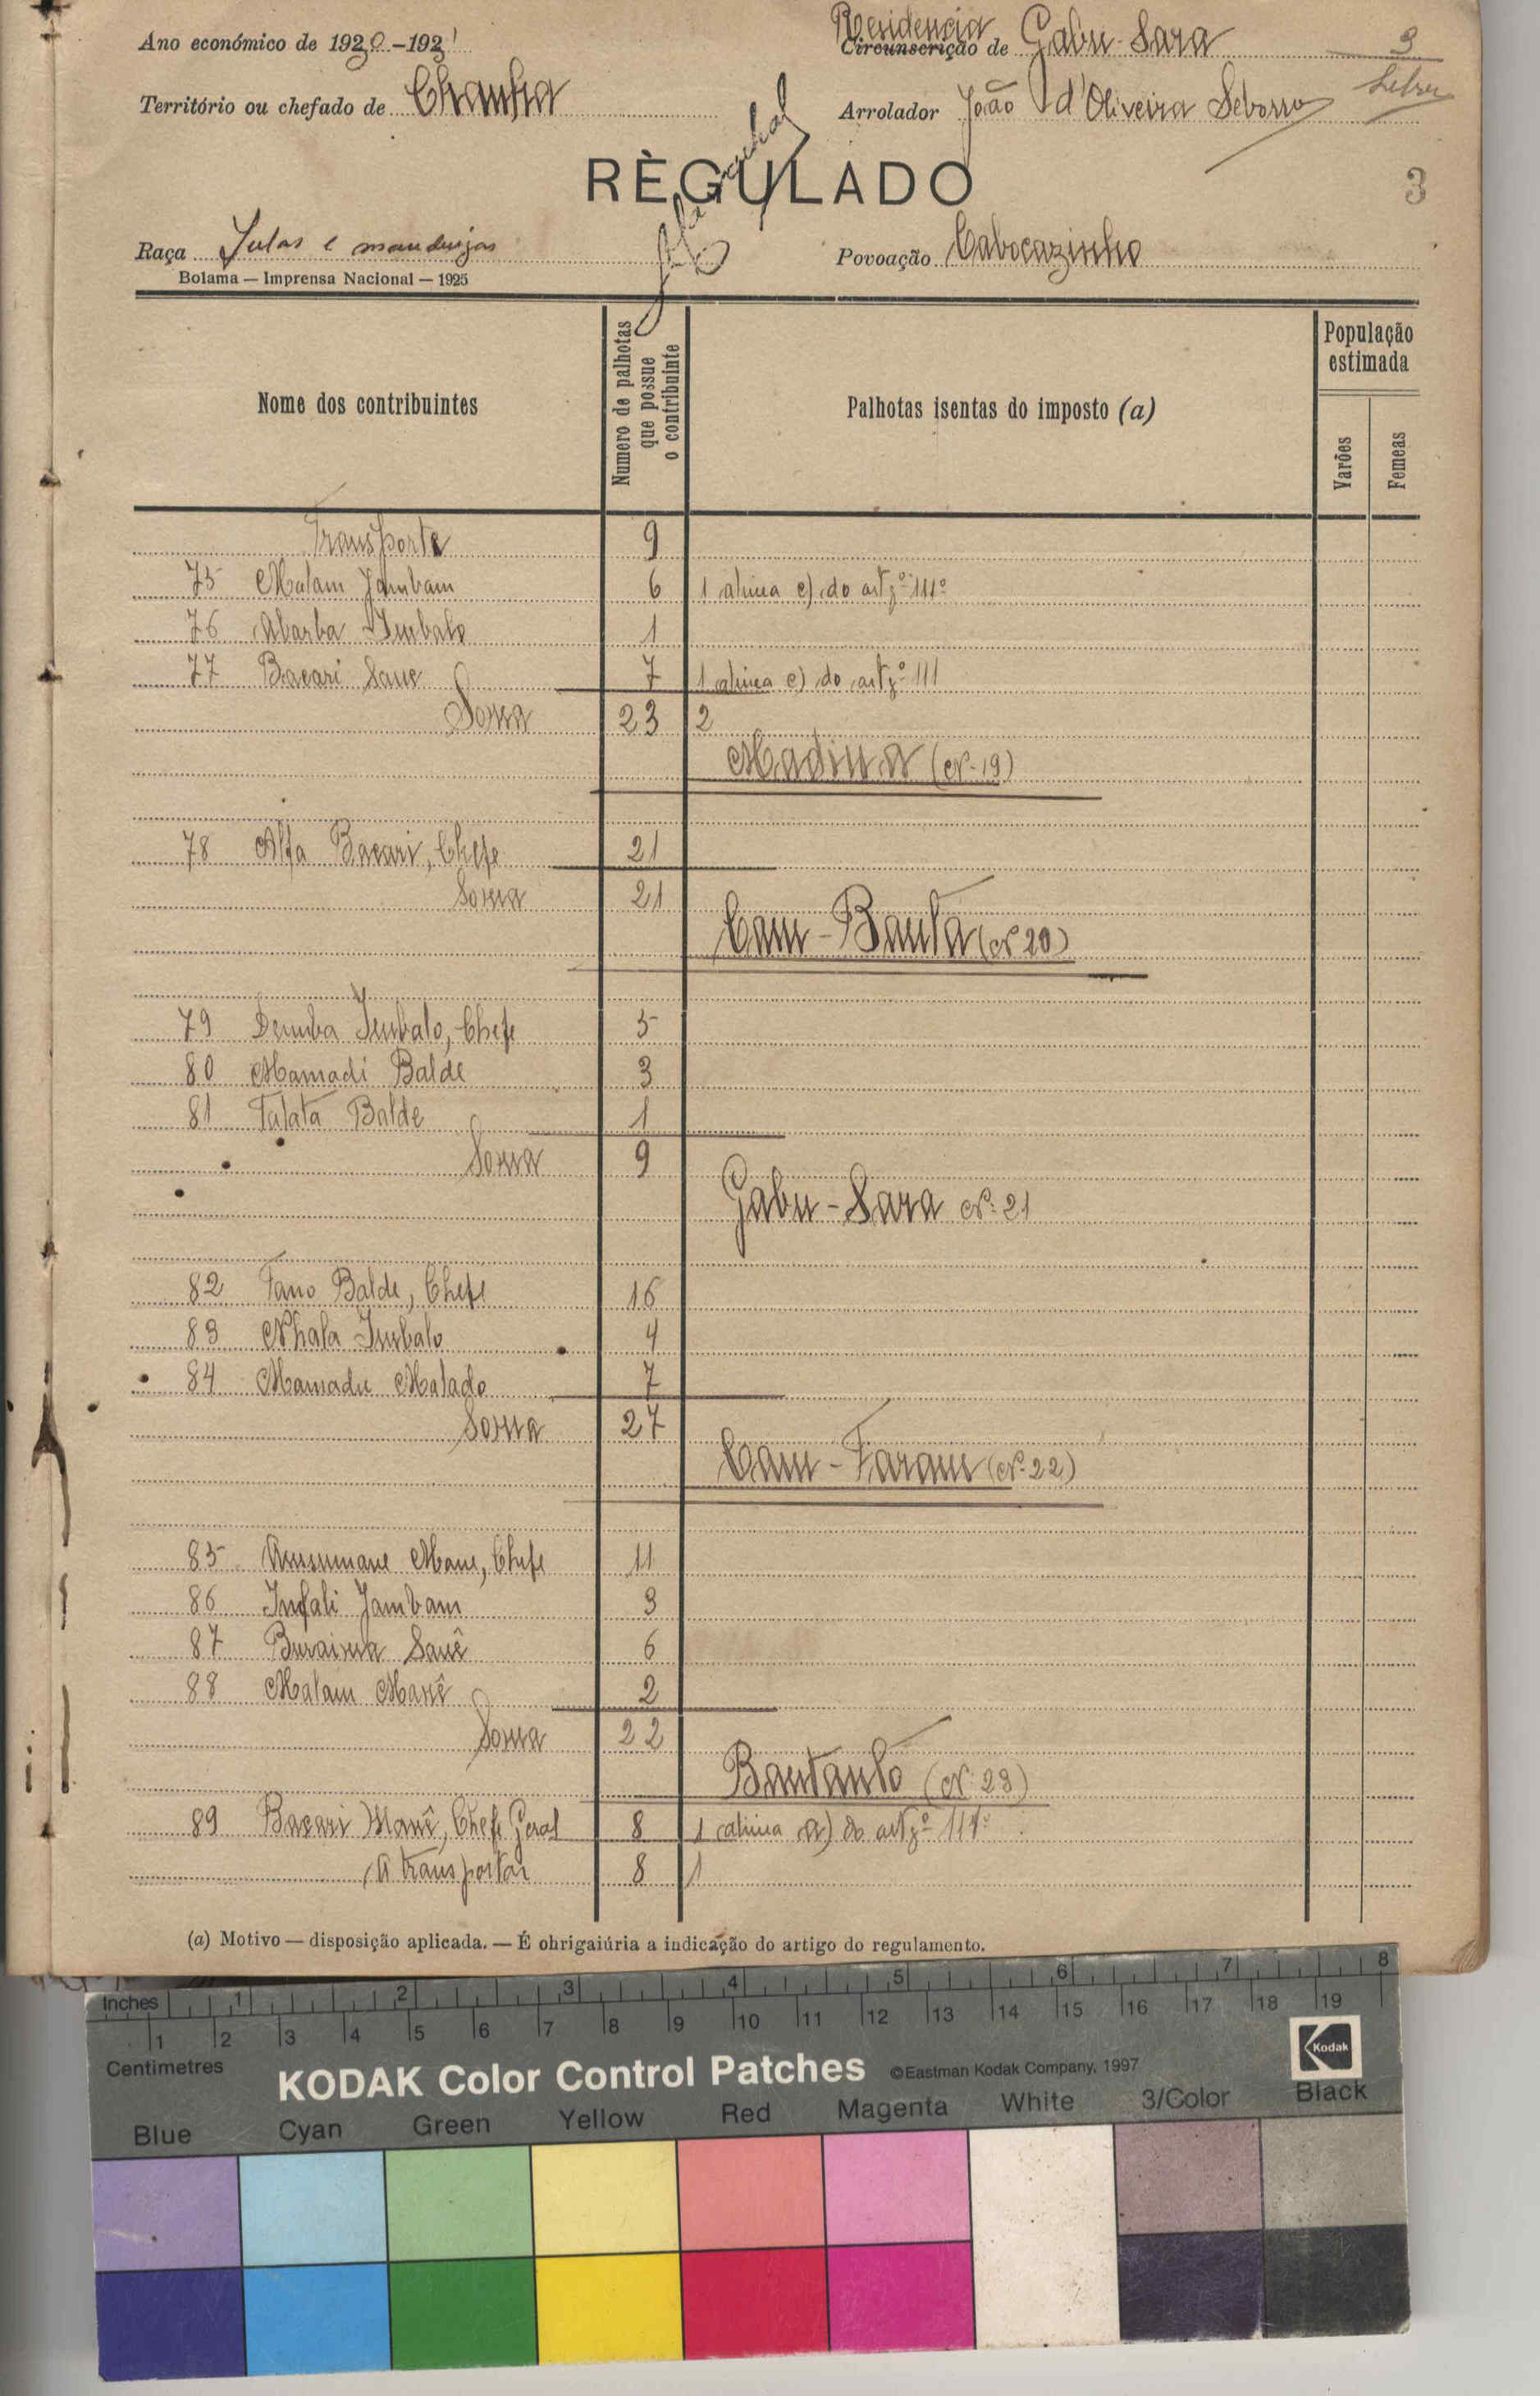 Ano económico de 1930-1931
Residencia
Circunscrição de Gabu-Sara
3
Território ou chefado de Chanha
Arrolador João d'Oliveira
RÈGULADO
3
Raça Fulas e mandingas
Povoação Cabocazinho
Bolama — Imprensa Nacional — 1925
Nome dos contribuintes
Numero de palhotas que possue o contribuinte
Palhotas isentas do imposto (a)
População estimada
Varões
Femeas
Transporte 9
75 Malam Jambam 6 1 alinea e) do artgº 111º
76 Abarba Imbalo 1
77 Bacari Sane 7 1 alinea e) do artgº 111
Soma 23 2
Madina (Nº 19)
78 Alfa Bacari, Chefe 21
Soma 21
Cam-Bantà (Nº 20)
79 Demba Imbalo, Chefe 5
80 Mamadi Balde 3
81 Talata Balde 1
Soma 9
Gabu-Sara Nº 21
82 Tano Balde, Chefe 16
83 Nhala Imbalo 4
84 Mamadu Malado 7
Soma 27
Cam-Faram (Nº 22)
85 Ansumane Mane, Chefe 11
86 Infali Jambam 3
87 Buraima Sanê 6
88 Malam Manê 2
Soma 22
Bantantò (Nº 23)
89 Bacari Manê, Chefe Geral 8 1 alinea a) do artgº 111º
A transportar 8 1
(a) Motivo — disposição aplicada. — É ohrigaiúria a indicação do artigo do regulamento.
Inches 1 2 3 4 5 6 7 8
1 2 3 4 5 6 7 8 9 10 11 12 13 14 15 16 17 18 19
Centimetres
KODAK Color Control Patches ©Eastman Kodak Company, 1997
Kodak
Blue Cyan Green Yellow Red Magenta White 3/Color Black